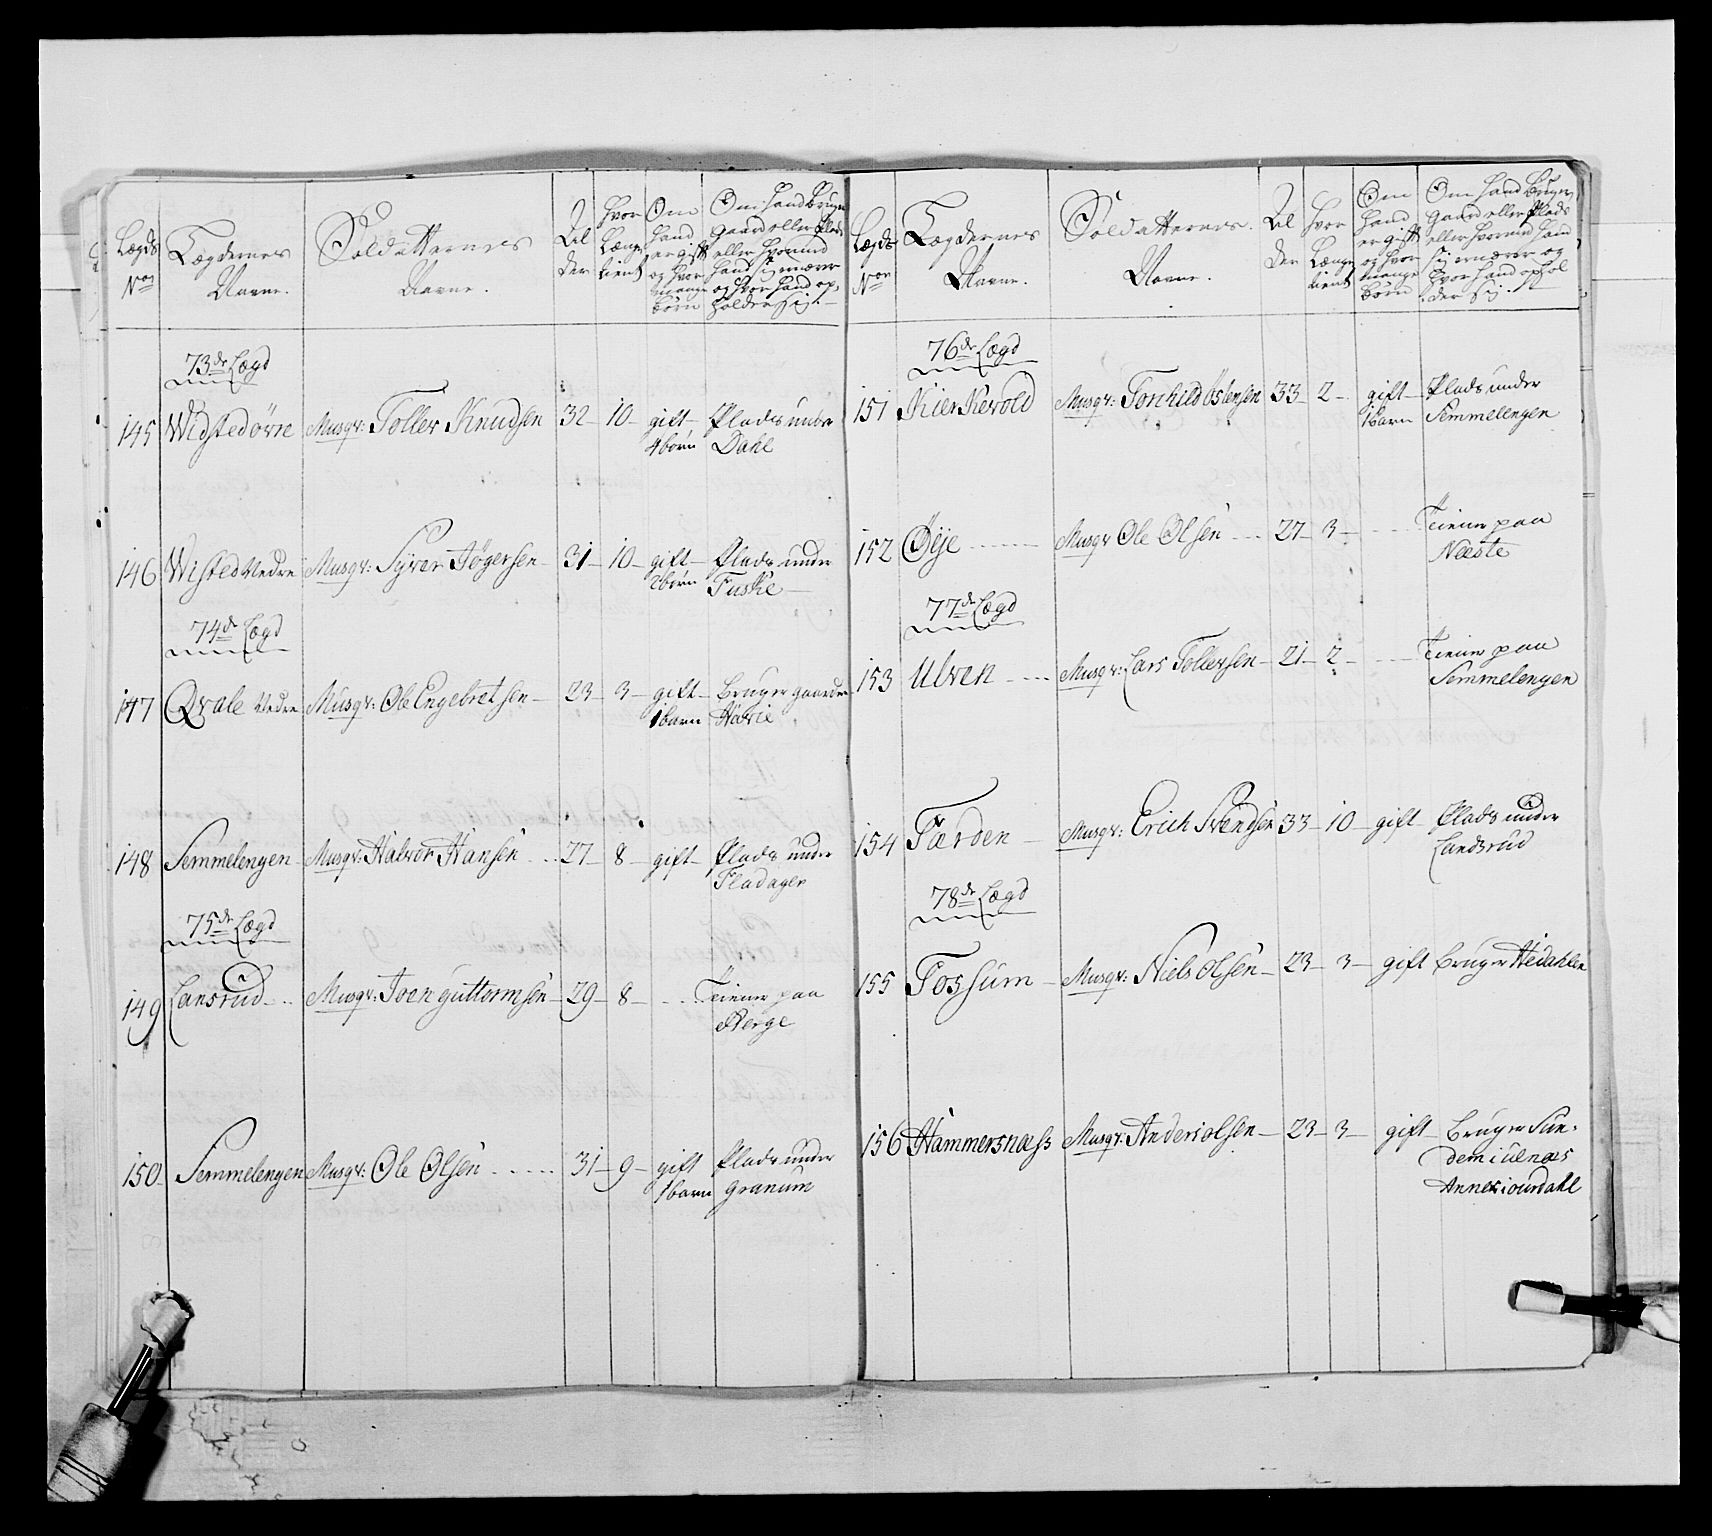 Lægds
Nos
Lægdernes
Navne.
Soldatternes
Navne.
Al
der
hvor
Længe
tient
Om
hand
er gift
og hvor
mange
børn
Om hand bruger
gaard eller Plads
eller hvormed
hand sig ernærer
og hvor hand op,
holder sig.
73de Lægd
145 Widstedøvre Musqv: Toller Knudsen 32 10 gift Plads under
4 børn Dahl
146 Wisted Nedre Musqv: Syver Jøgersen 31 10 gift Plads under
2 børn Fuske
74de Lægd
147 Qvale Nedre Musqv: Ole Engebretsen 23 3 gift Bruger gaarden
1 barn Harie
148 Semmelengen Musqv: Halvor Hansen 27 8 gift Plads under
Fladager
75de Lægd
149 Lansrud Musqv: Joen guttormsen 29 8 Tiener paa
Berge
150 Semmelengen Musqv: Ole Olsen 31 9 gift Plads under
1 barn granum
Lægds
Nor
Lægdernes
Navne.
Soldatternes.
Navne.
Al
der
hvor
Længe
tient
Om
hand
er gift
og hvor
mange
børn
Om hand bruger
gaard eller Plads
eller hvormed hand
sig ernærer og
hvor hand ophol
der sig.
76de Lægd
151 Kierkevold Musqv: Torchild Østensen 33 2 gift Plads under
1 barn Semmelengen
152 Øÿe Musqv Ole Olsen 27 3 Tiener paa
Næste
77de Lægd
153 Ulven Musqv: Lars Tollersen 21 2 Tiener paa
Semmelengen
154 Færden Musqv: Erich Svendsen 33 10 gift Plads under
Landsrud
78de Lægd
155 Fossum Musqv: Niels Olsen 23 3 gift Bruger Hedahlen
156 Hammersnæss Musqv: Anders olsen 23 3 gift Bruger Sun,